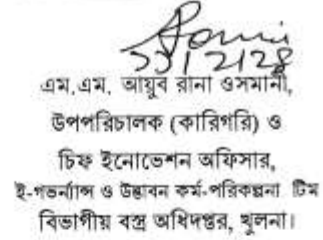 ২১/২/২৪
এম.এম. আয়ুব রানা ওসমানী,
উপপরিচালক (কারিগরি) ও
চিফ ইনোভেশন অফিসার,
ই-গভর্ন্যান্স ও উদ্ভাবন কর্ম-পরিকল্পনা টিম
বিভাগীয় বস্ত্র অধিদপ্তর, খুলনা।